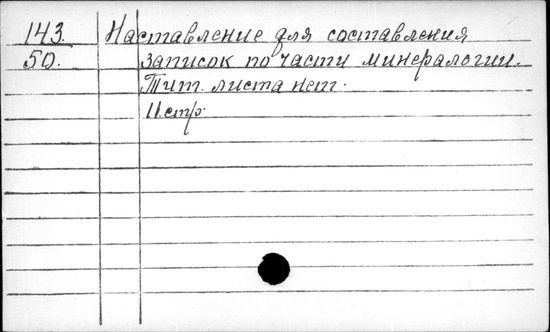 143. Наставление для составления
50. записок по части минералогии.
Тит. листа нет.
11 стр.